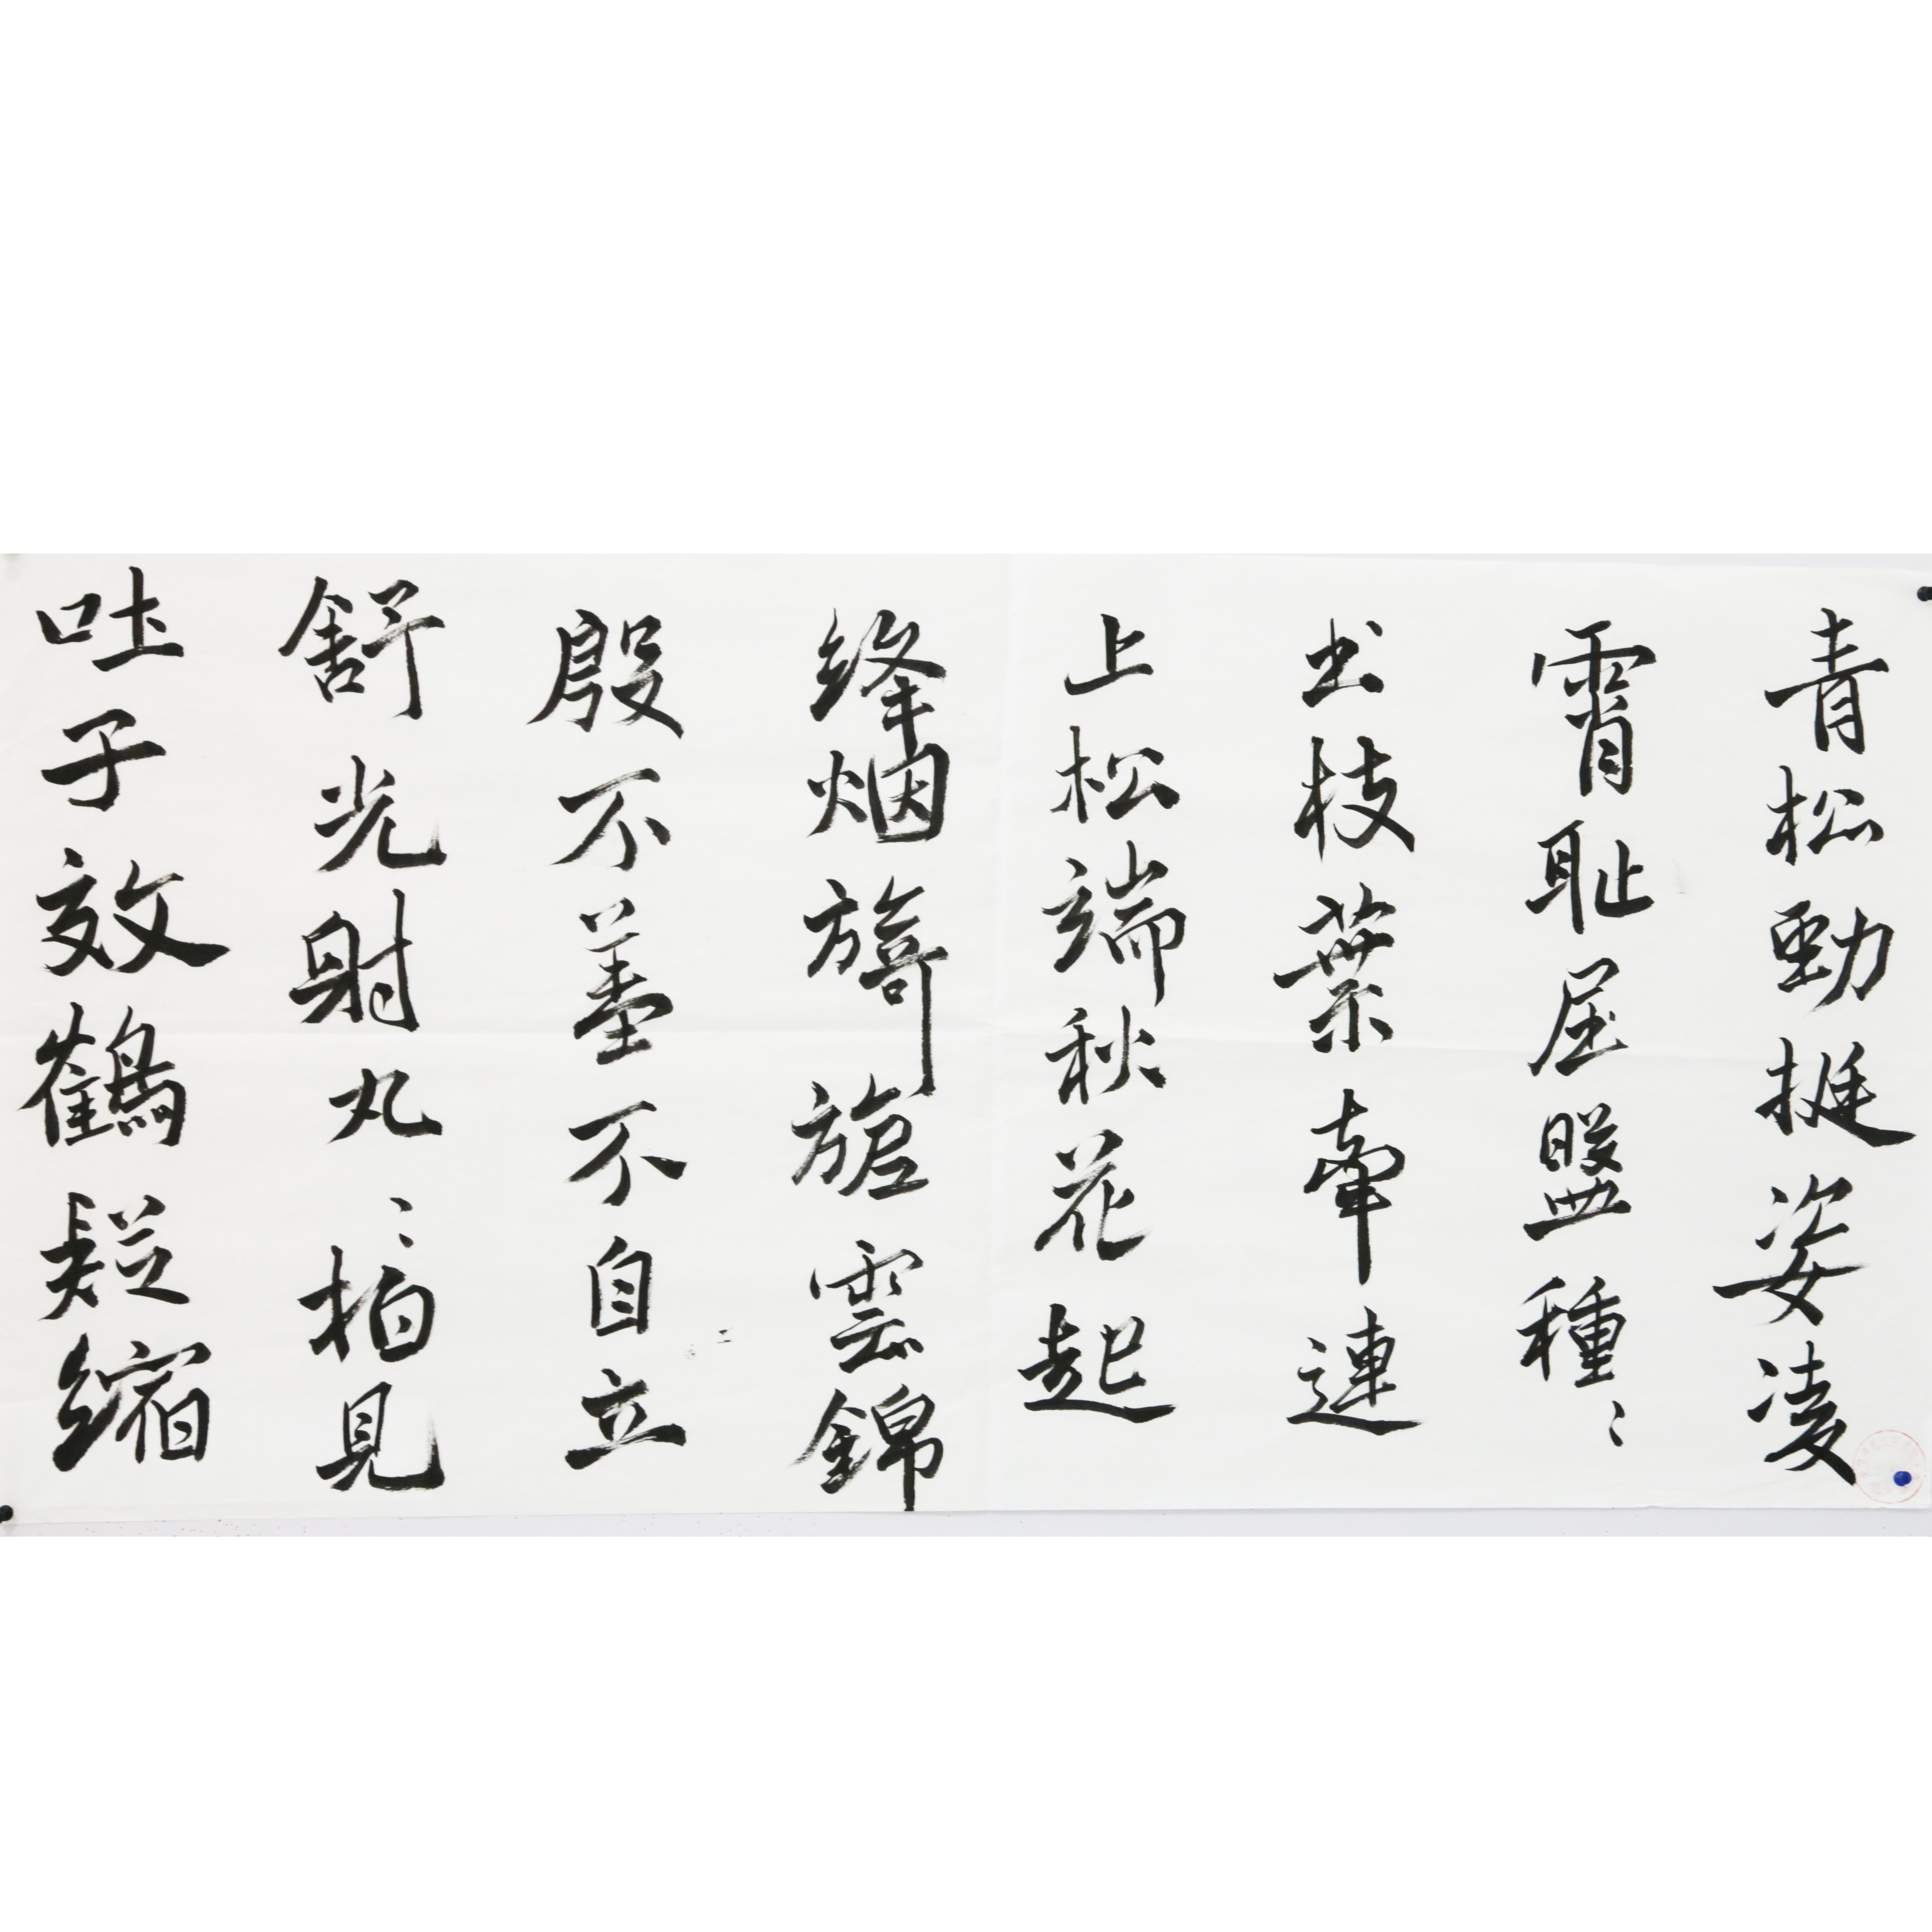 青松勁挺姿凌
霄耻屈盤種〻
出枝葉牽連
上松端秋花起
絳烟旖旎雲錦
殷不羞不自立
舒光射丸〻柏見
吐子效鶴疑縮